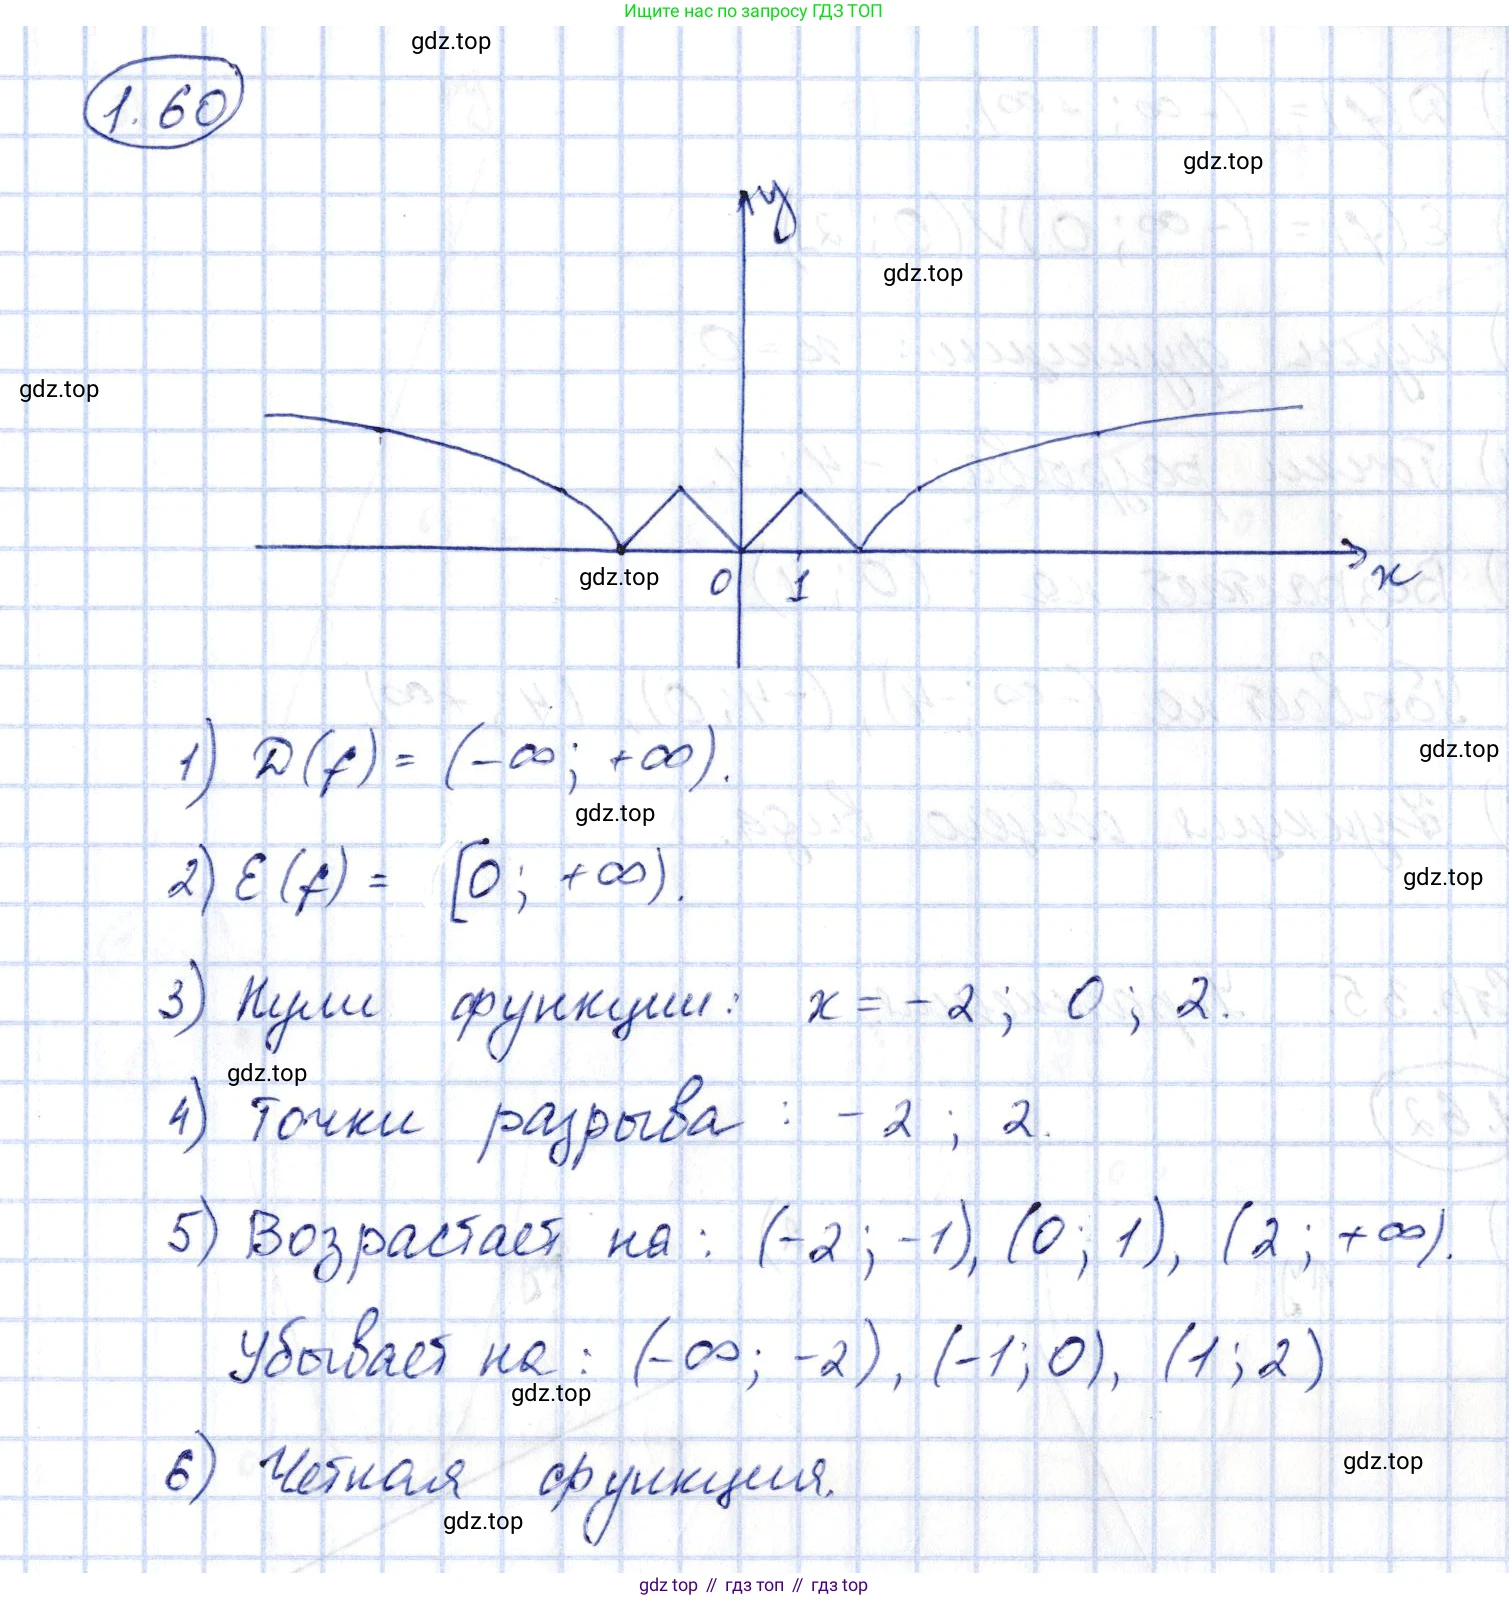 Ищите нас по запросу ГДЗ ТОП
gdz.top
1.60
gdz.top
y
gdz.top
gdz.top
gdz.top
0 1 x
1) D(f) = (-∞; +∞).
gdz.top
gdz.top
2) E(f) = [0; +∞).
gdz.top
3) Нули функции: x = -2; 0; 2.
gdz.top
4) Точки разрыва: -2; 2.
5) Возрастает на: (-2; -1), (0; 1), (2; +∞).
Убывает на: (-∞; -2), (-1; 0), (1; 2)
gdz.top
6) Четная функция.
gdz.top
gdz.top
gdz top // гдз топ // гдз top